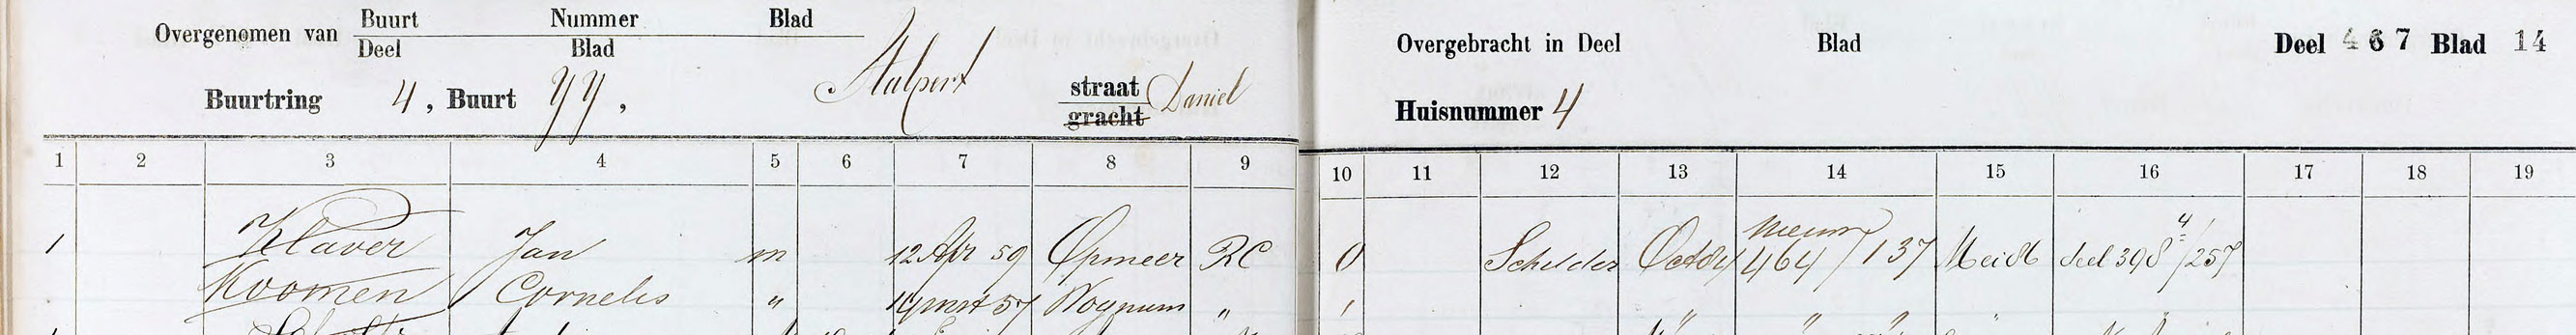 Overgenomen van Buurt Nummer Blad
Deel Blad
Buurtring 4, Buurt YY, Stalpert straat Daniel
gracht
Overgebracht in Deel Blad Deel 467 Blad 14
Huisnummer 4
1 2 3 4 5 6 7 8 9 10 11 12 13 14 15 16 17 18 19
1 Klaver Jan m 12 Apr 59 Opmeer RC 0 Schilder Oct 84 nieuw 464/137 Mei 86 deel 398 4/257
Koomen Cornelis " 57 Wognum "